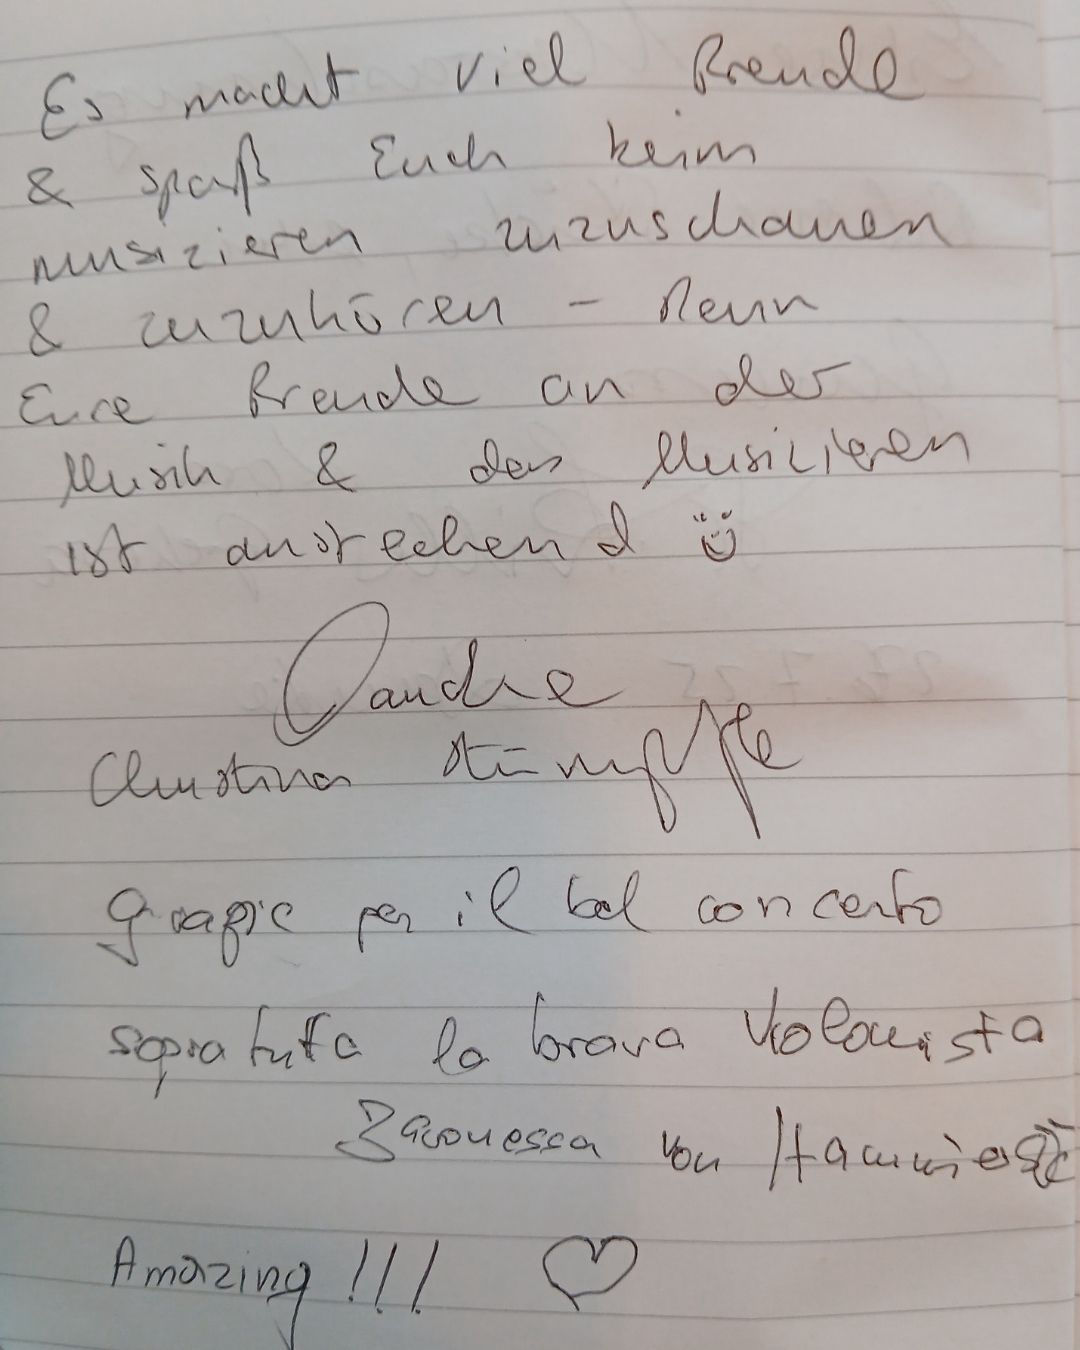 Es macht viel Freude
& spaß Euch beim
musizieren zuzuschauen
& zuzuhören – Denn
Eure Freude an der
Musik & das Musizieren
ist ansteckend
Danke
Christina Stümpfle
Grazie per il bel concerto
sopratutto la brava Violonista
Baronessa von
Amazing!!!